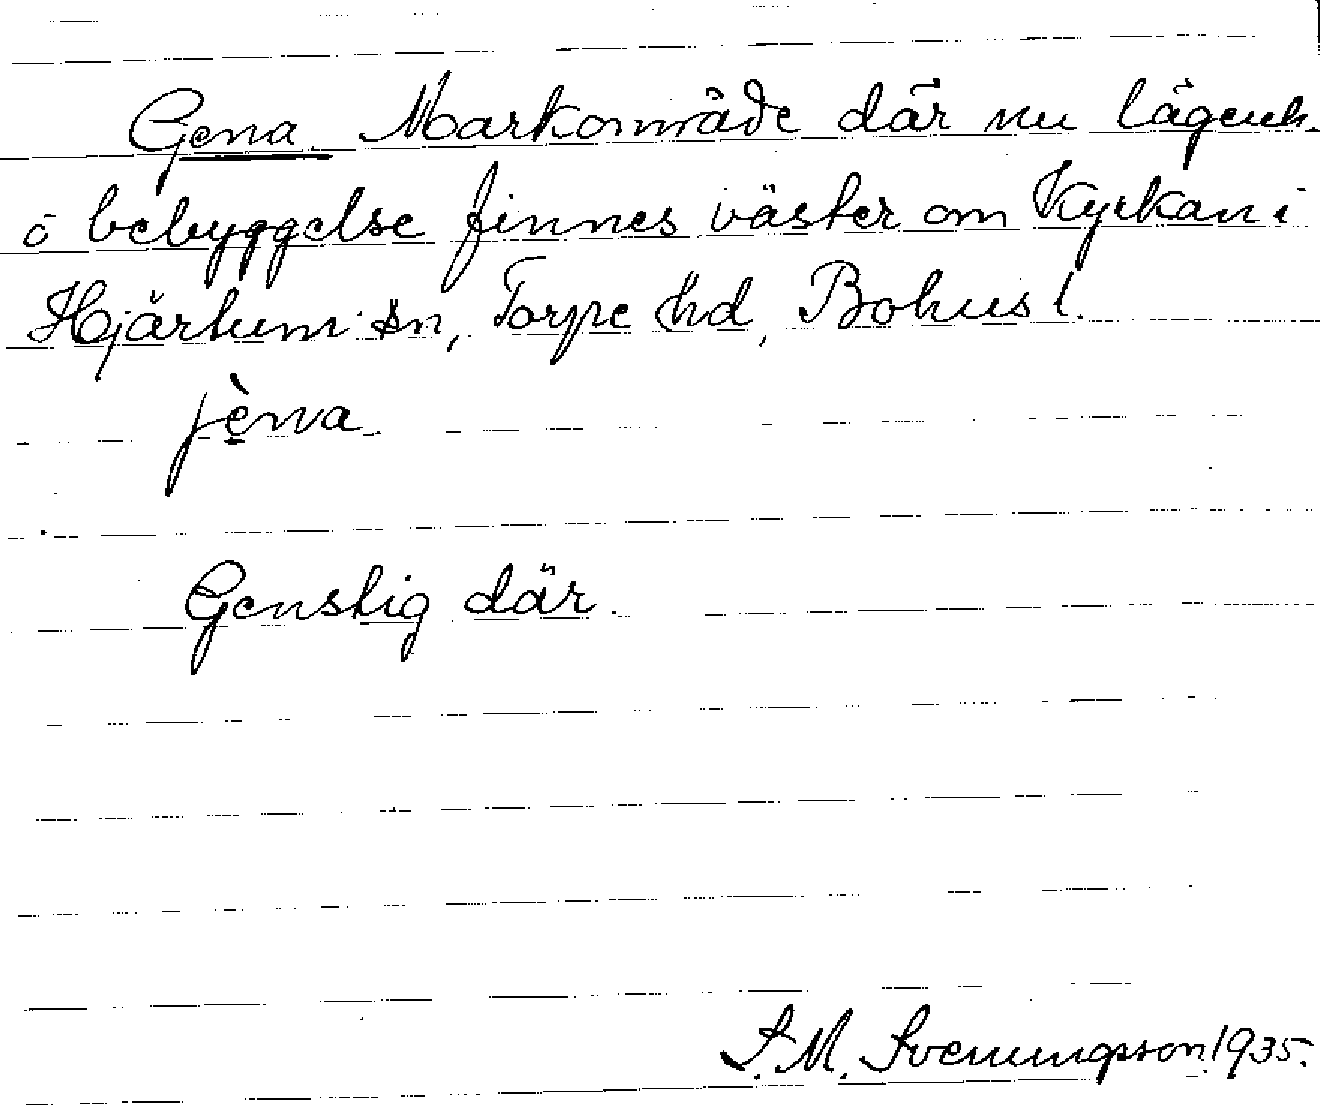 Gena. Markområde där nu lägenh.
ö bebyggelse finnes väster om Kyrkan i
Hjärtum sn, Torpe hd, Bohusl.
jèna.
Genstig där.
J. M. Svenungsson 1935.